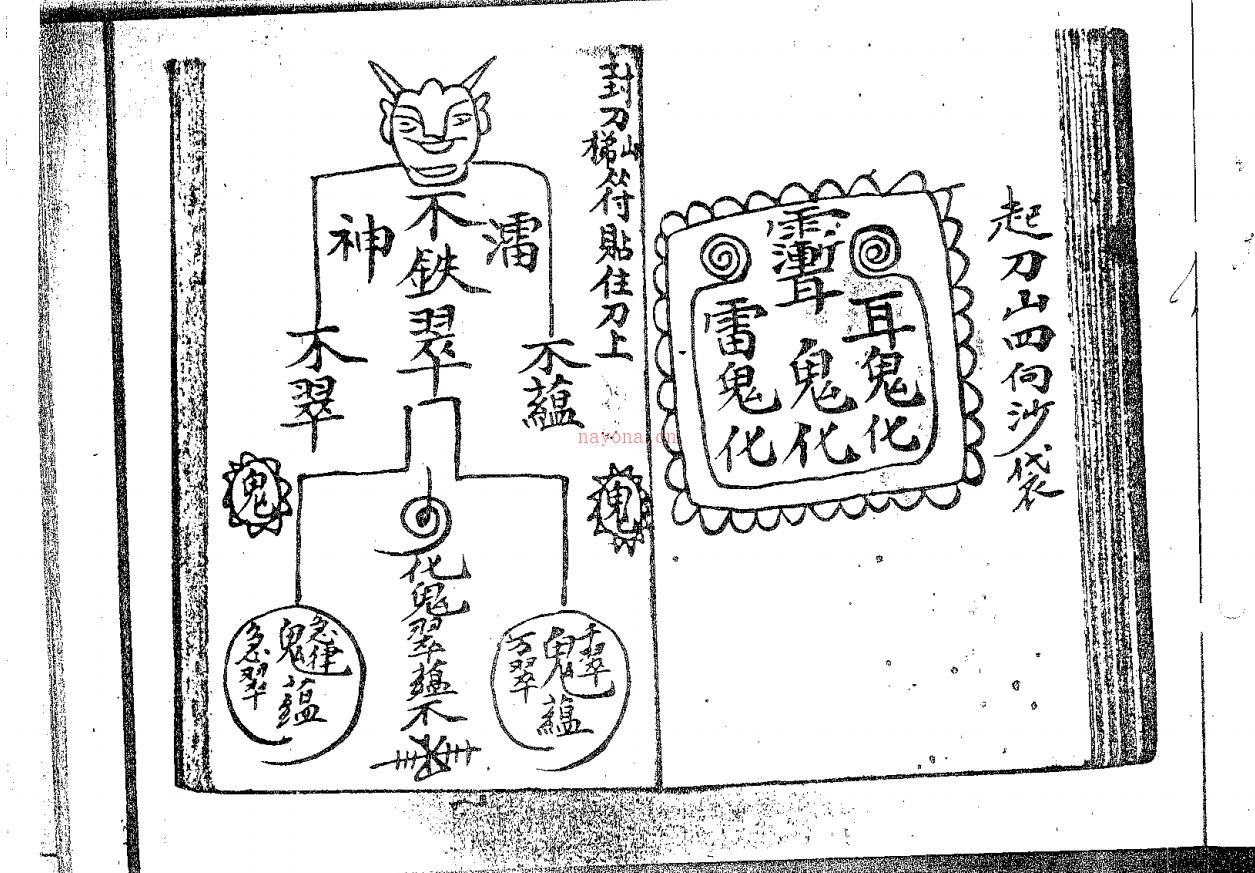 起刀山四向沙袋
耳鬼化
鬼化
雷鬼化
封刀山
梯
符貼住刀上
神
不鉄翠
不翠
不蘊
鬼
鬼
化鬼翠蘊不
千翠
鬼蘊
万翠
急律
鬼蘊
急翠
nayona.cn